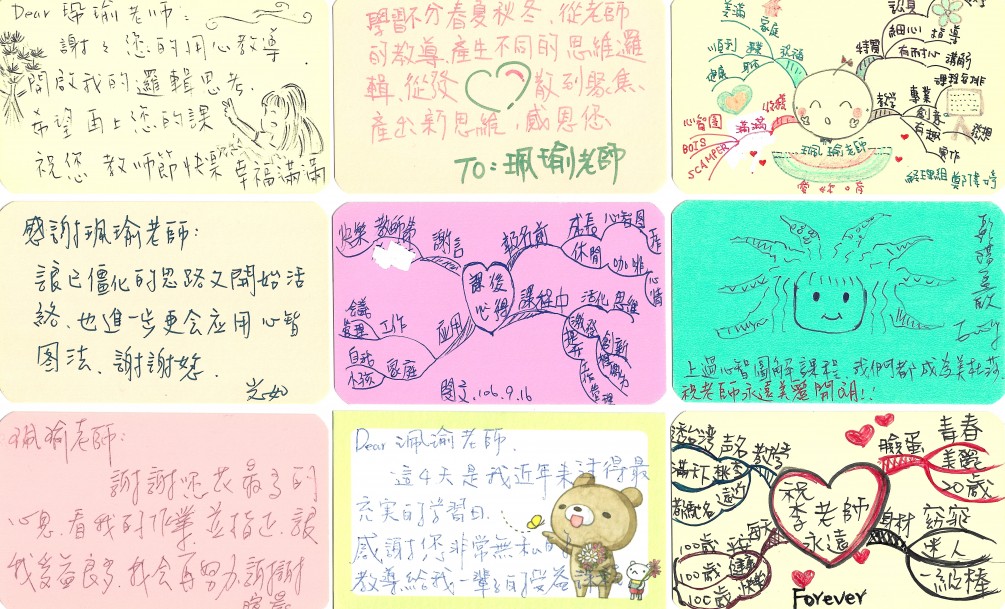 Dear 珮瑜老師:
謝々您的用心教導
開啟我的邏輯思考.
希望再上您的課
祝您 教师節快樂 幸福滿滿
學習不分春夏秋冬、從老師
的教導、產生不同的思維邏
輯、從發散到聚焦、
產出新思維,感恩您
TO:珮瑜老師
美滿
家庭
順利
祝福
健康
收穫
滿滿
心智圖
SCAMPER
特質
細心 指導
有耐心 講解
課程安排
教學
專業
創意
有趣
實作
珮瑜老師
感謝珮瑜老師:
讓已僵化的思路又開始活
絡、也進一步更会应用心智
图法、謝謝您.
快樂 教師節
謝言
課後
心得
應用
工作
會議
家庭
小孩
成長 心智圖
休閒
咖啡
心情
課程中
活化思維
激發
創新
管理
106.9.16
上過心智圖解課程,我們都成為美杜莎
祝老師永遠美麗開朗!!
珮瑜老師:
謝謝您花最多的
心思,看我的作業並指正,讓
我受益良多,我会再努力,謝謝
Dear 珮瑜老師.
這4天是我近年来過得最
充实的學習日.
感謝您非常無私的
教導給我一輩子的受益
祝
李老師
永遠
聲名
臉蛋
青春
美麗
20歲
身材
窈窕
迷人
一級棒
100歲
100歲
100歲
Forever